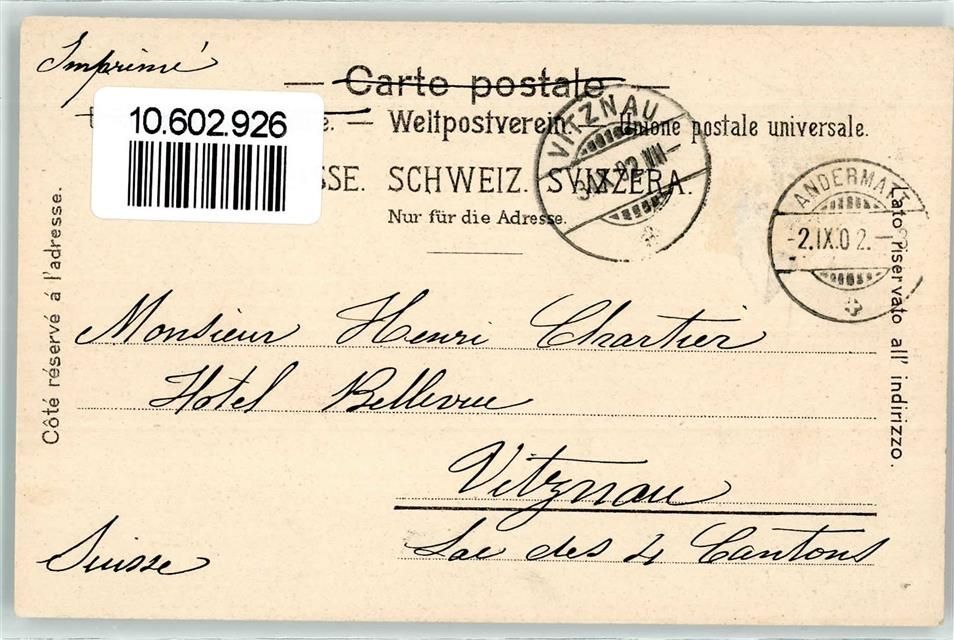 Imprimé
Carte postale
10.602.926
Weltpostverein. Unione postale universale.
SSE. SCHWEIZ. SVIZZERA.
Nur für die Adresse.
VITZNAU
ANDERMATT
-2.IX.02.-3
Côté réservé á l'adresse.
Lato riservato all' indirizzo.
Monsieur Henri Chartier
Hotel Bellevue
Vitznau
Lac des 4 Cantons
Suisse